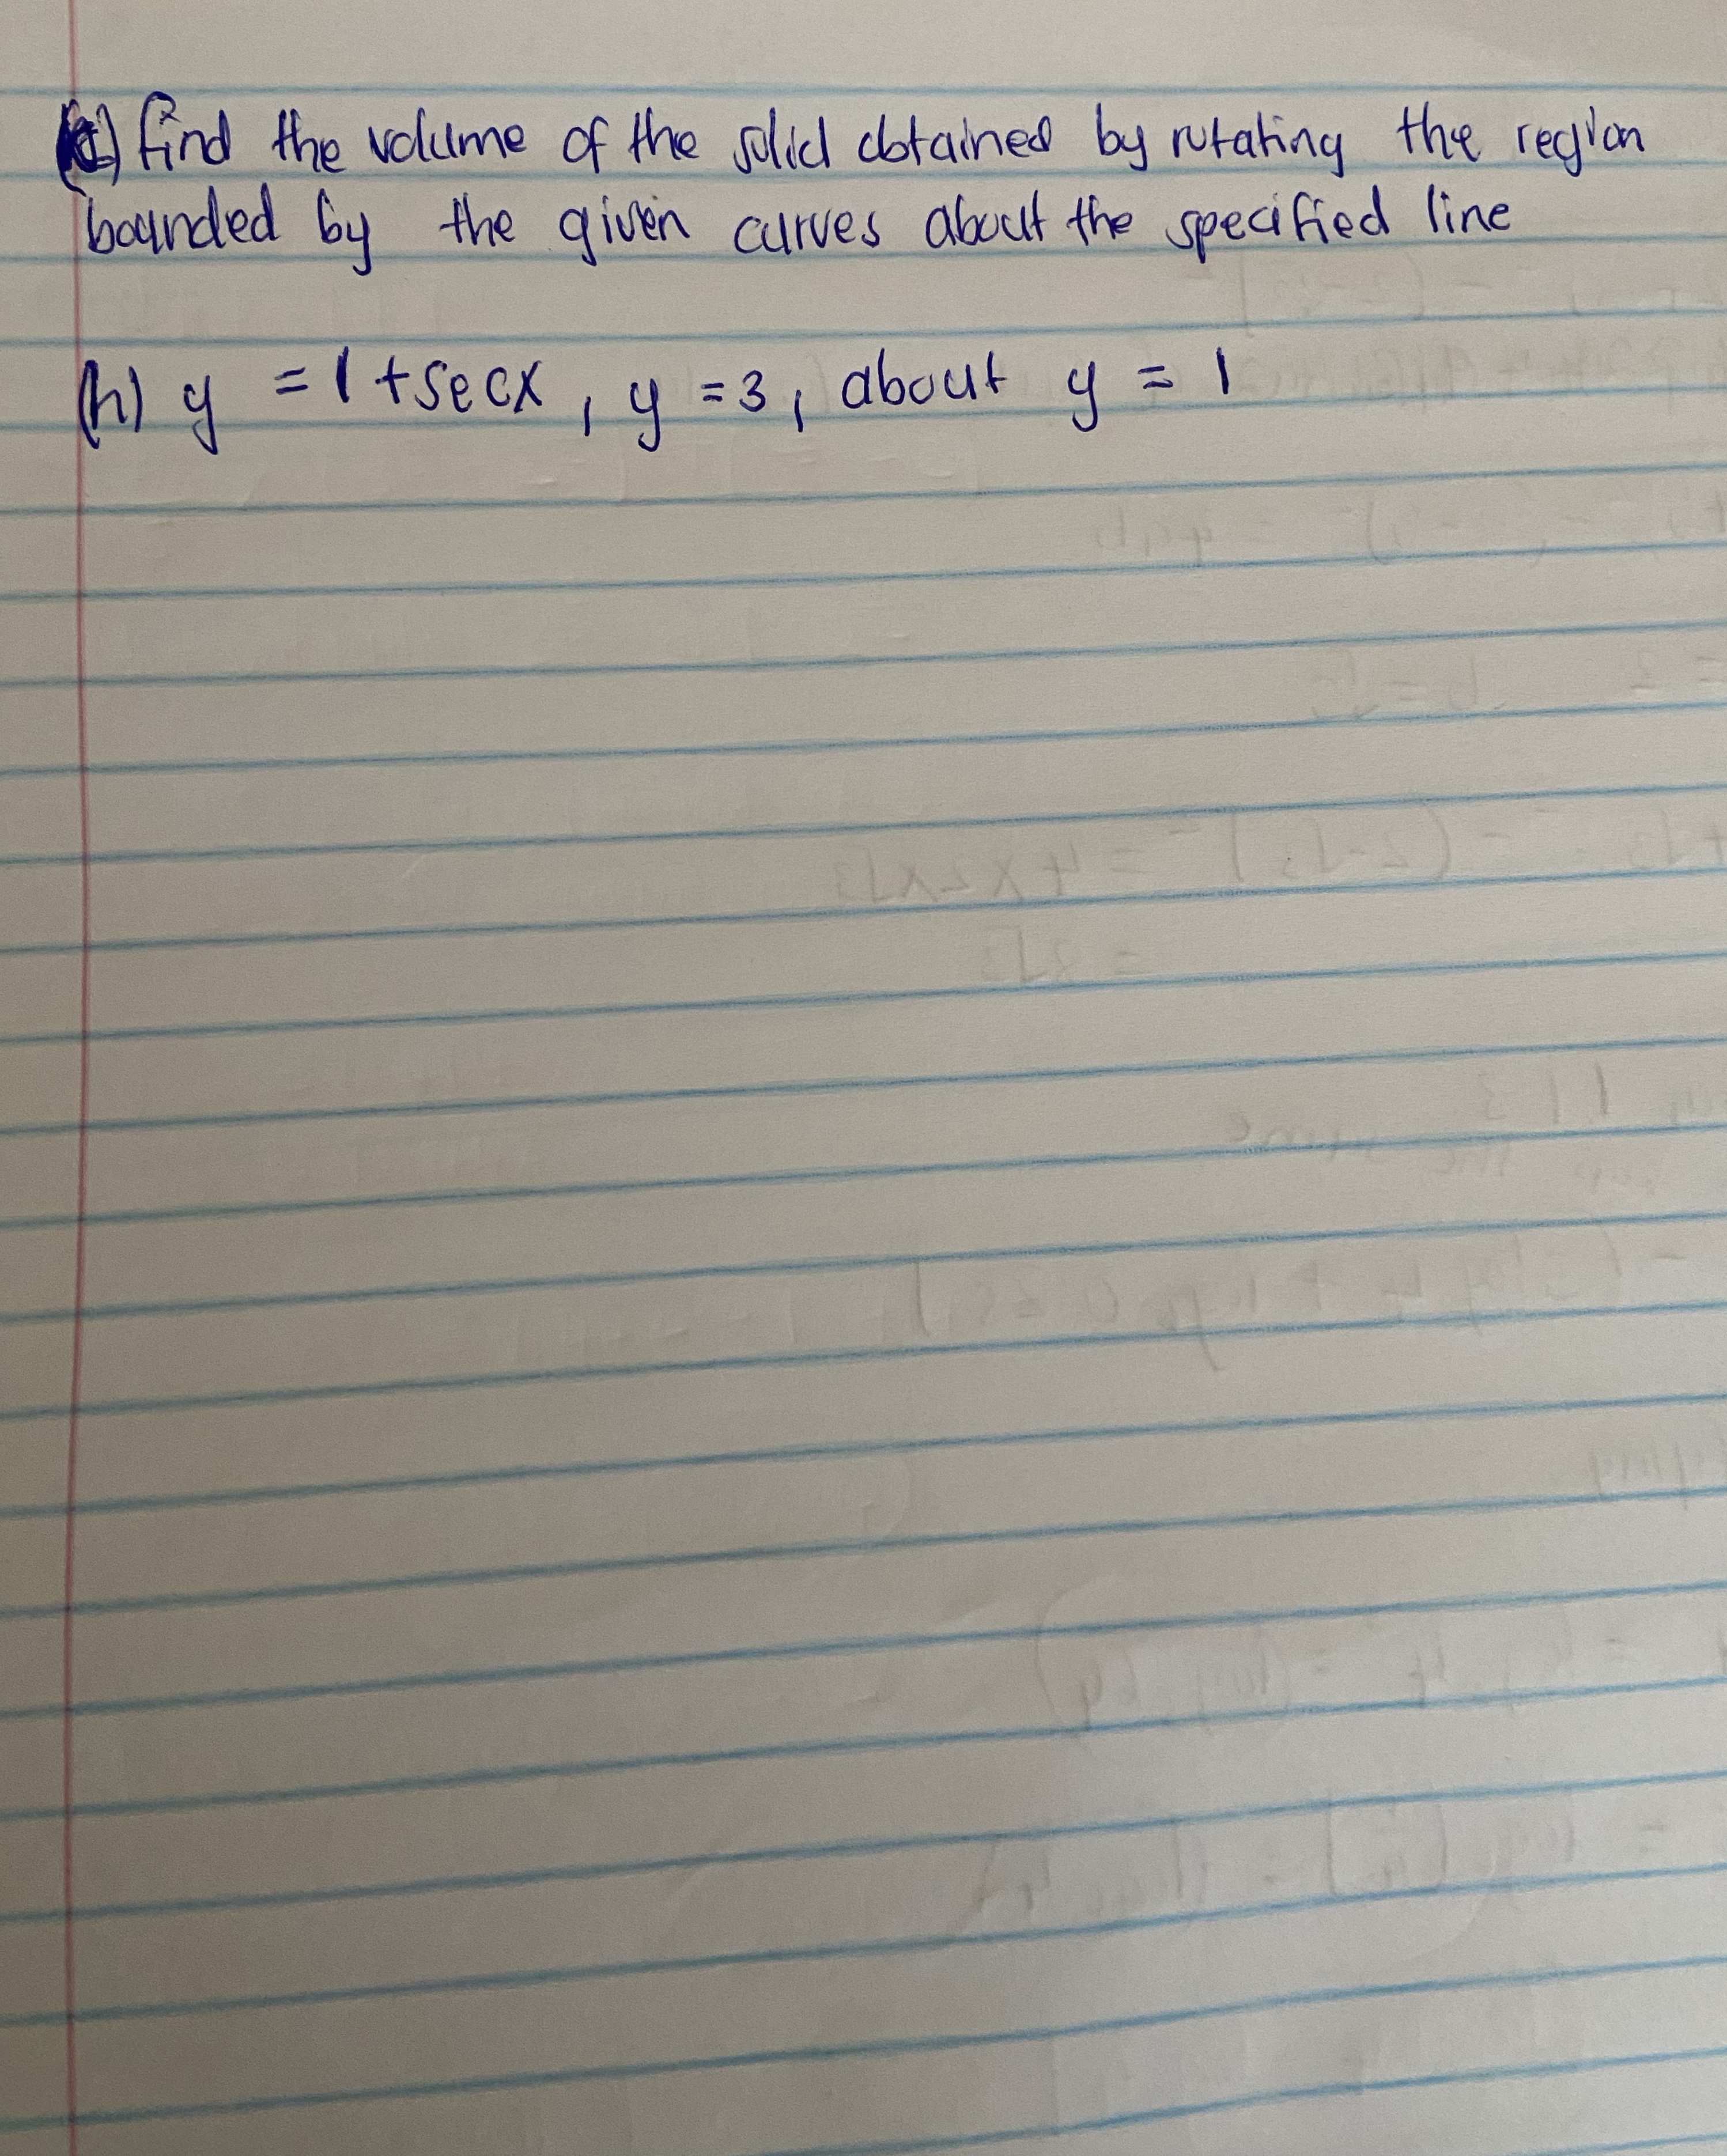 find the volume of the solid obtained by rotating the region
bounded by the given curves about the specified line
(h) y = 1 + secx , y = 3 , about y = 1